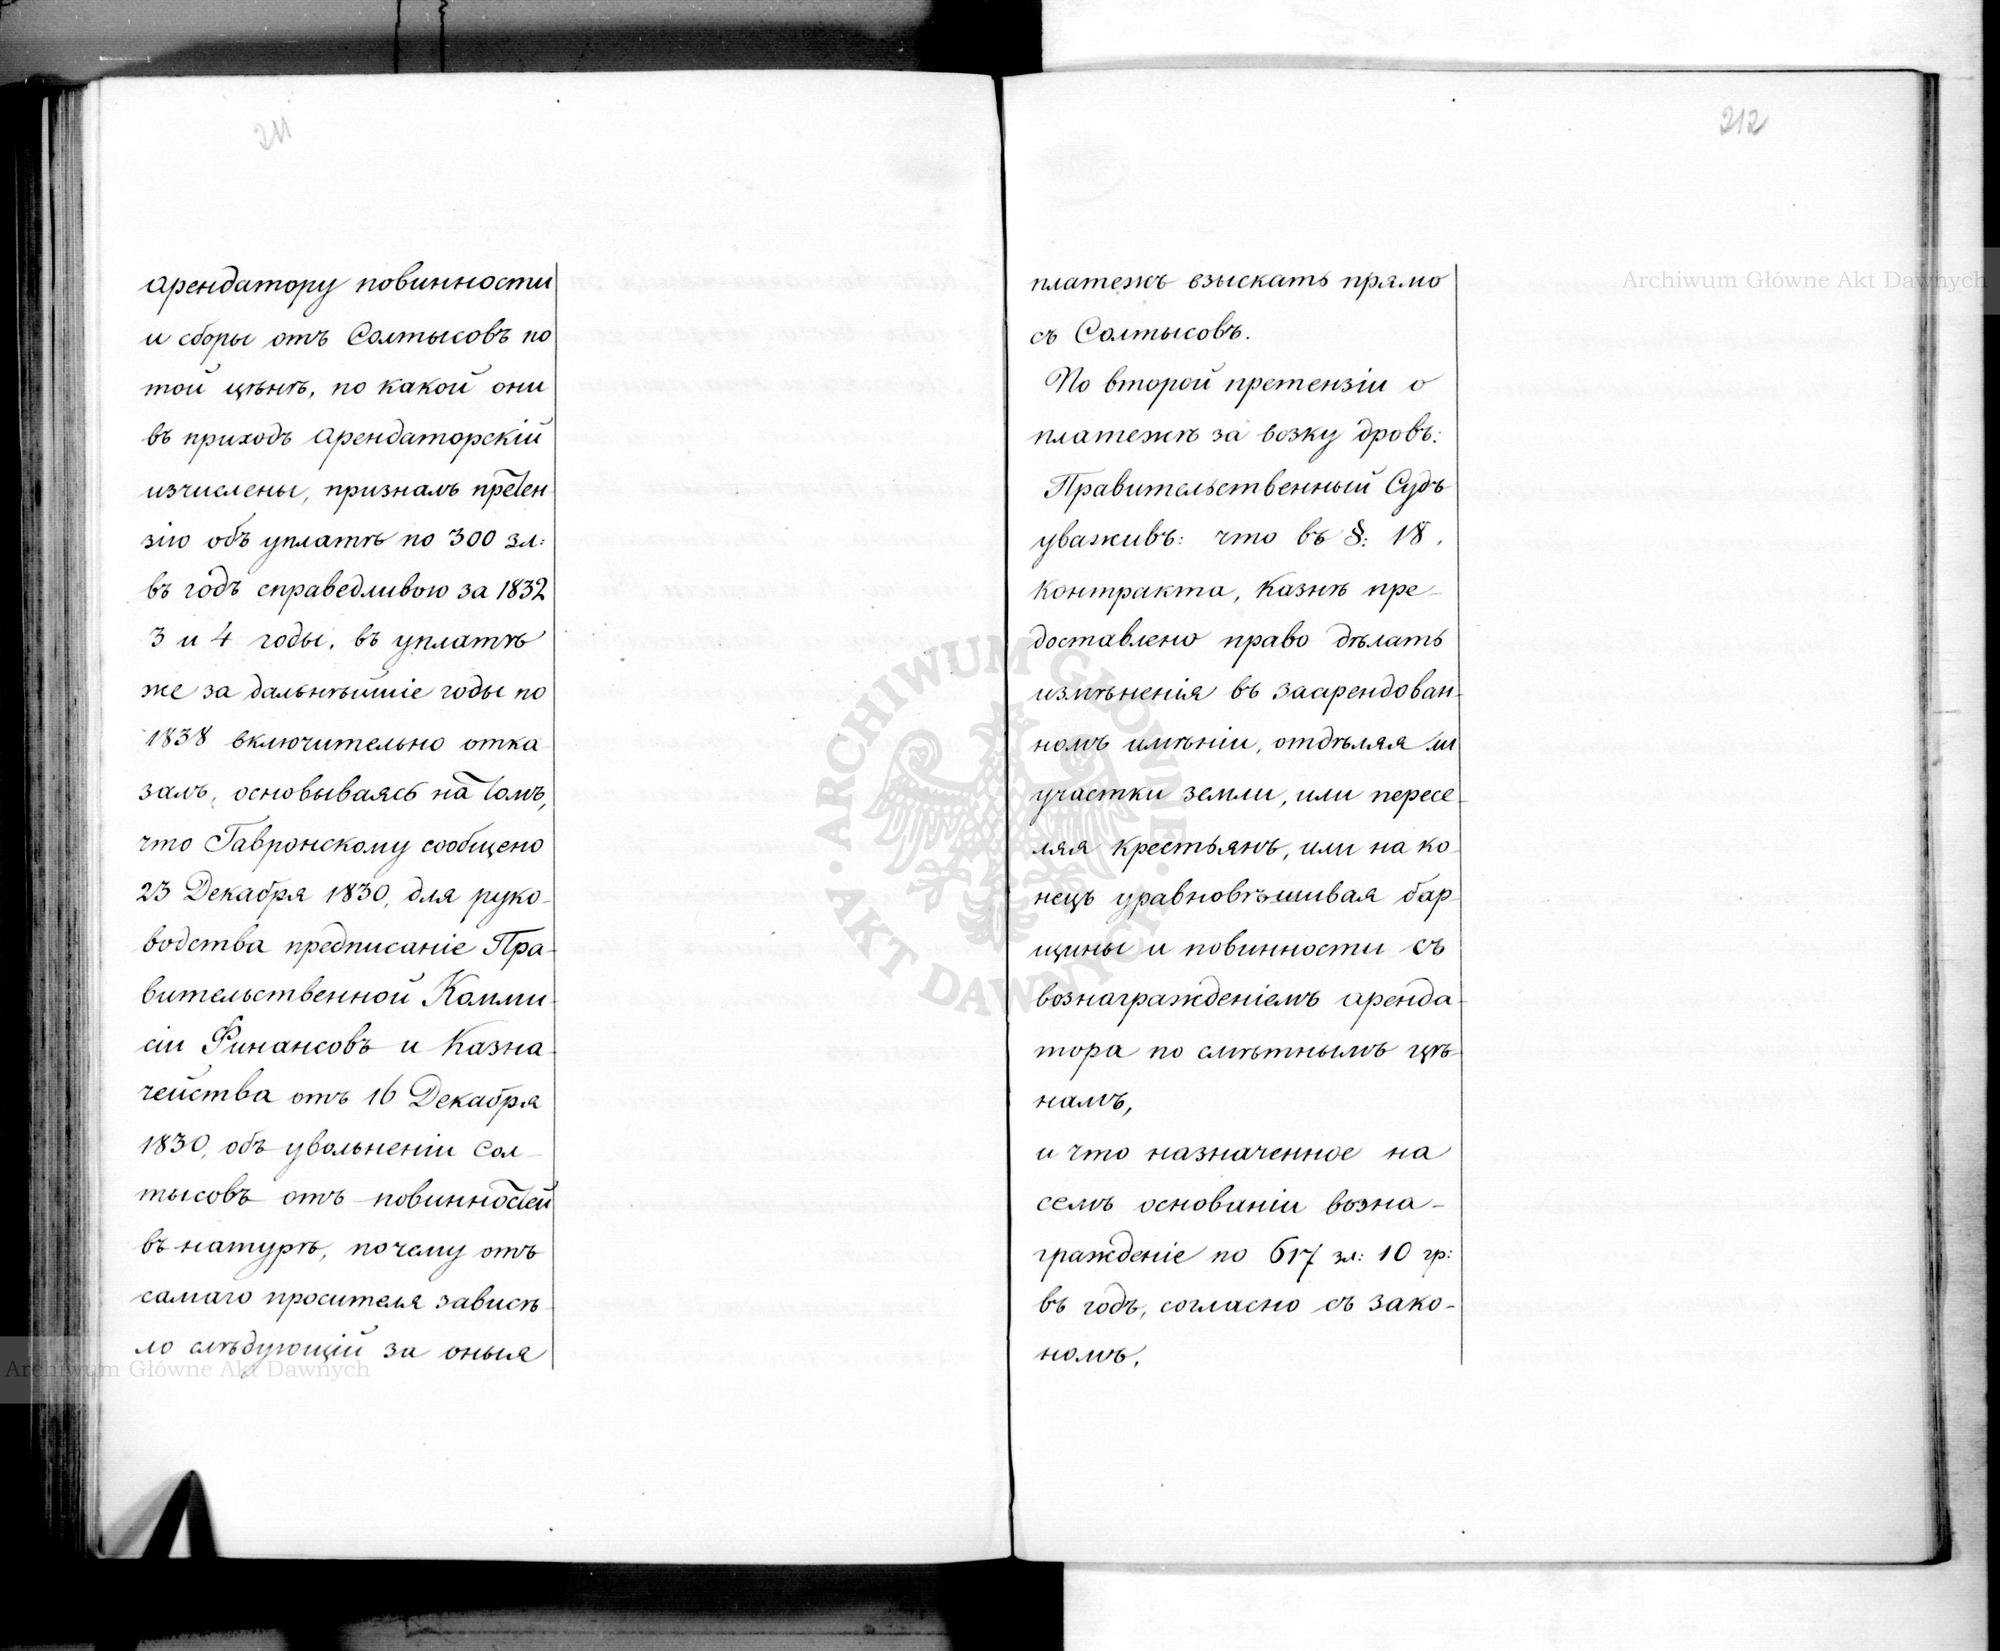 211
арендатору повинности
и сборы отъ Солтысовъ по
той цѣнѣ, по какой они
въ приходъ арендаторскій
изчислены, призналъ претен-
зію объ уплатѣ по 300 зл:
въ годъ справедливою за 1832
3 и 4 годы, въ уплатѣ
же за дальнѣйшіе годы по
1838 включительно отка-
залъ, основываясь на томъ,
что Гавронскому сообщено
23 Декабря 1830, для руко-
водства предписаніе Пра-
вительственной Комми-
сіи Финансовъ и Казна-
чейства отъ 16 Декабря
1830, объ увольненіи Сол-
тысовъ отъ повинностей
въ натурѣ, почему отъ
самаго просителя зависѣ-
ло слѣдующій за оныя
212
платежъ взыскать прямо
съ Солтысовъ.
По второй претензіи о
платежѣ за возку дровъ:
Правительственный Судъ
уваживъ: что въ §: 18.
контракта, Казнѣ пре-
доставлено право дѣлать
измѣненія въ заарендован-
номъ имѣніи, отдѣляя ли
участки земли, или пересе-
ляя крестьянъ, или на ко-
нецъ уравновѣшивая бар-
щины и повинности съ
вознагражденіемъ аренда-
тора по смѣтнымъ цѣ-
намъ,
и что назначенное на
семъ основаніи возна-
гражденіе по 617 зл: 10 гр:
въ годъ, согласно съ зако-
номъ.
Archiwum Główne Akt Dawnych
Archiwum Główne Akt Dawnych
ARCHIWUM GŁÓWNE AKT DAWNYCH